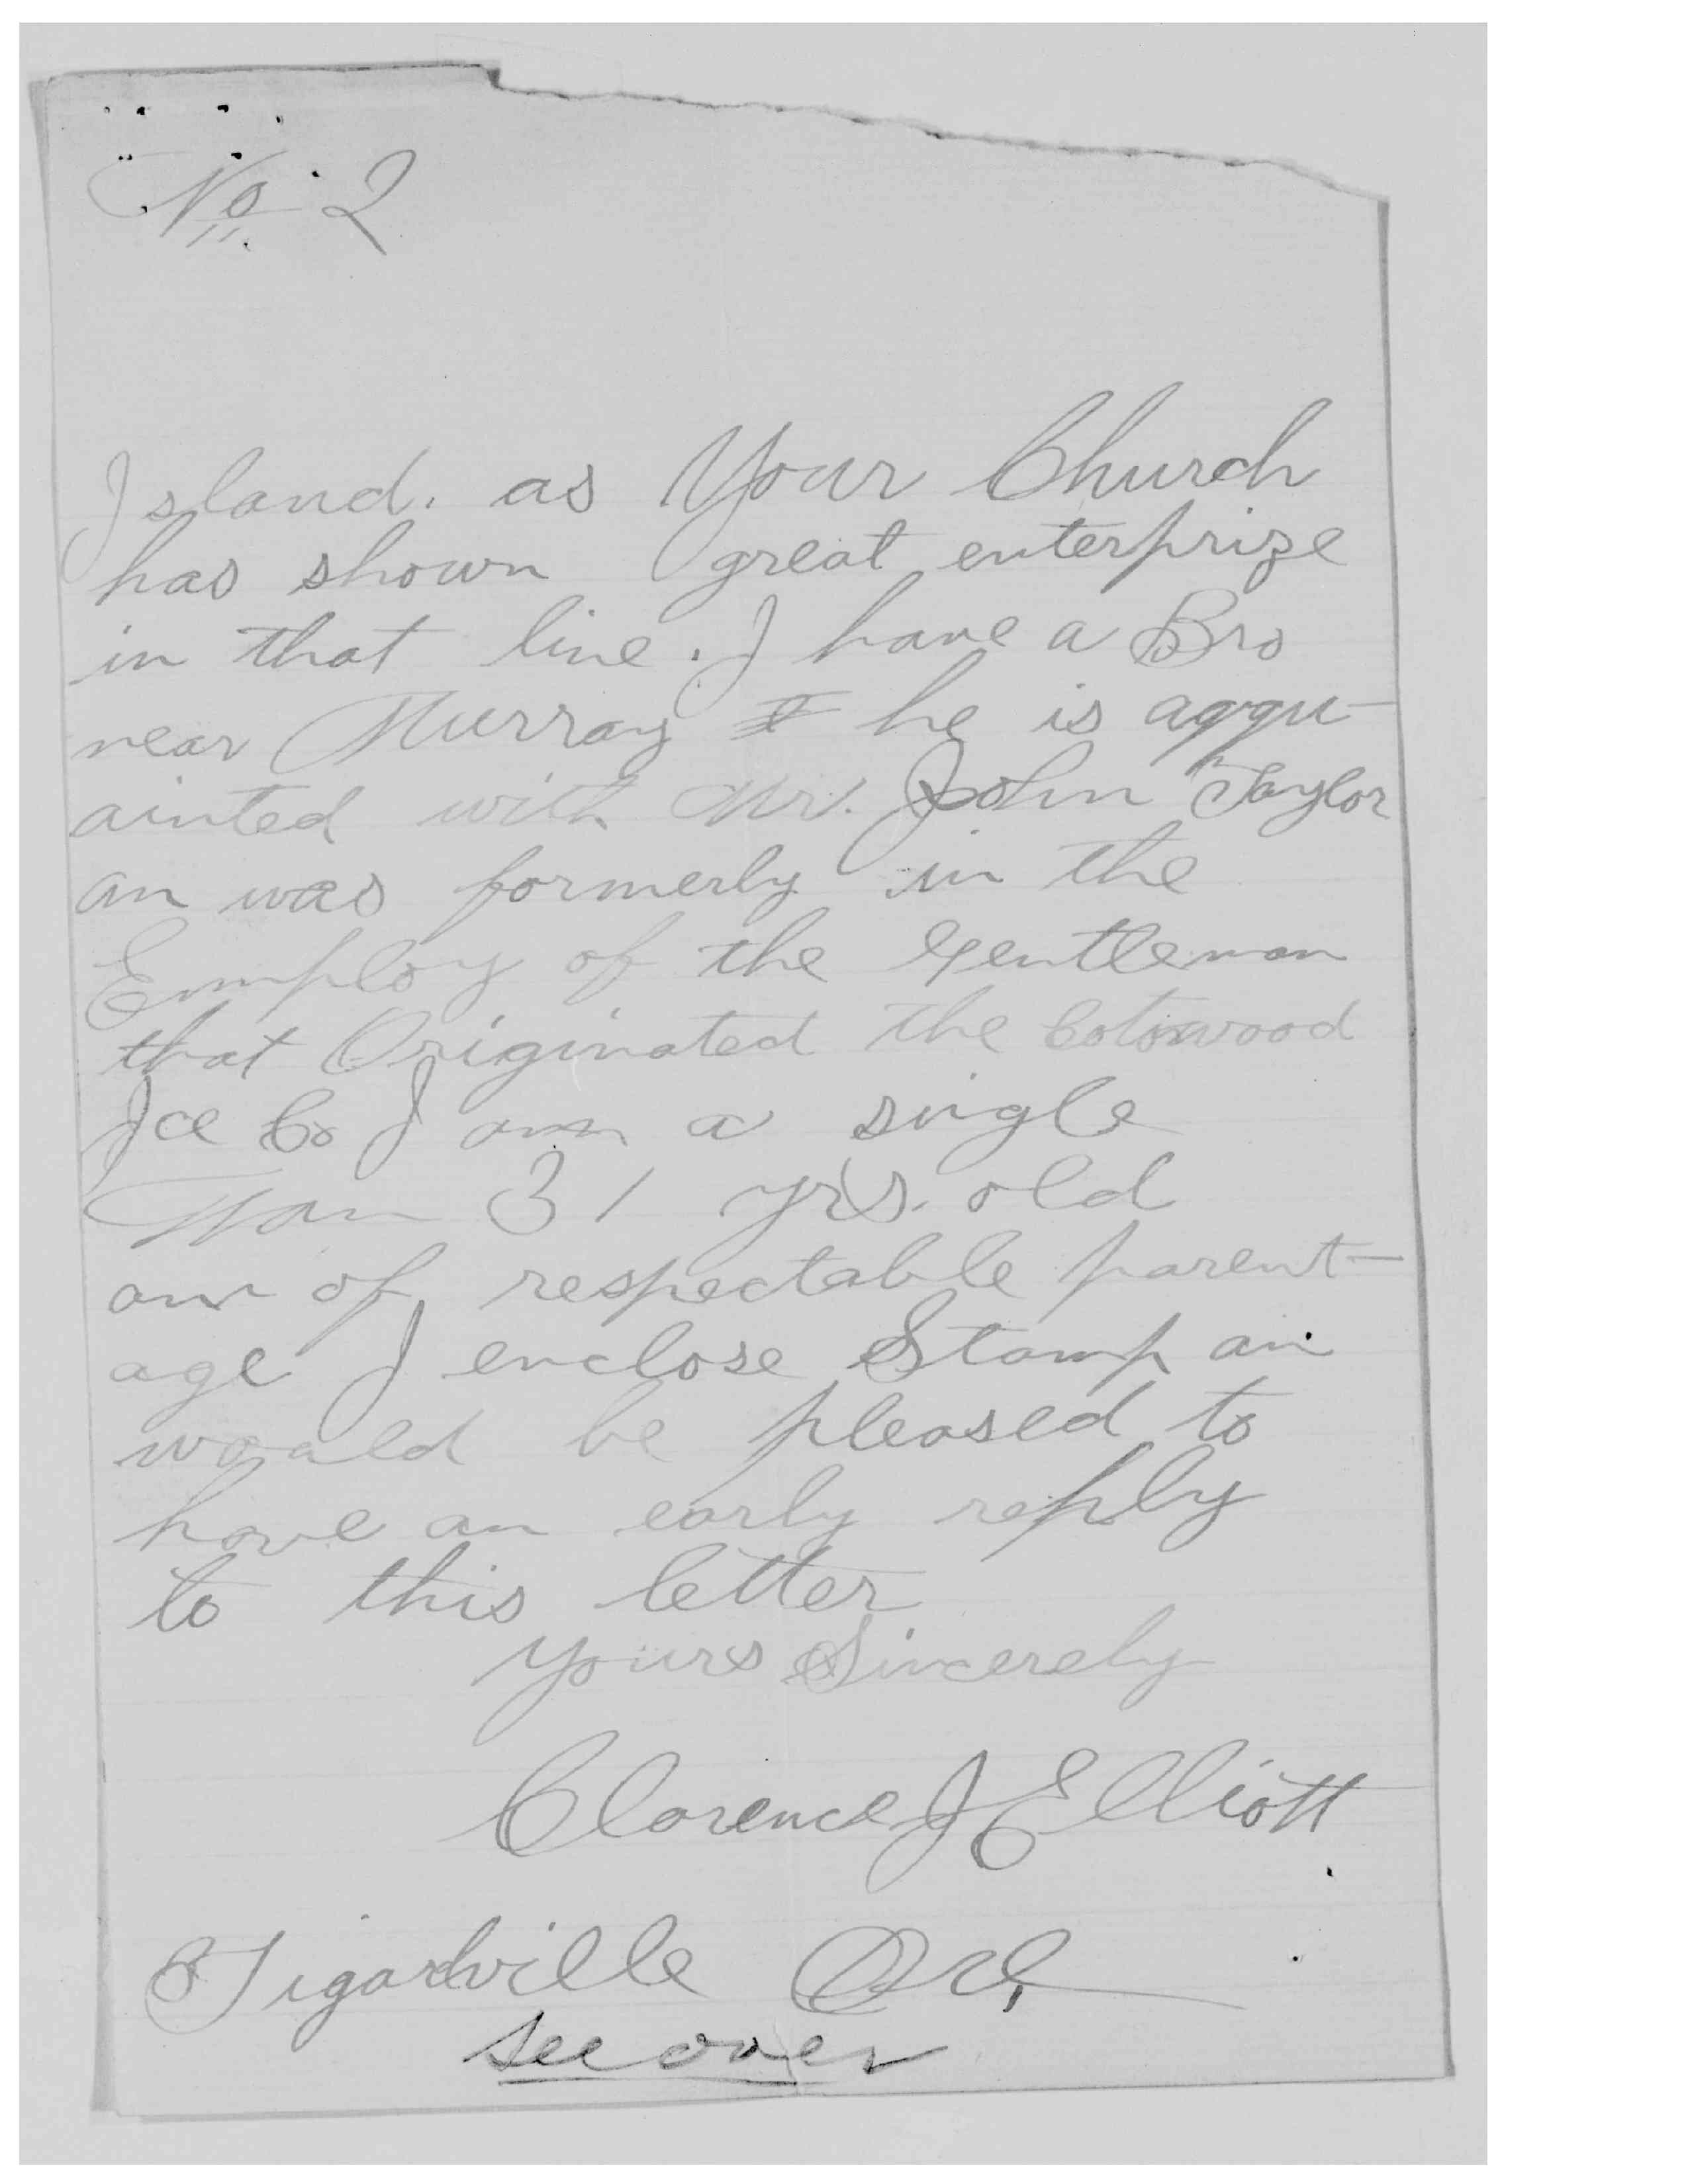 No 2
Island. as Your Church
has shown great enterprize
in that line. I have a Bro
near Murray he is aqqu-
ainted with Mr. John Taylor
an was formerly in the
Employ of the Gentleman
that Originated the Cotonwood
Ice Co I am a single
Man 31 yrs. old
am of respectable parent-
age I enclose Stamp an
would be pleased to
have an early reply
to this letter
Yours Sincerely
Clarence J Elliott
Tigardville Ore,
see over